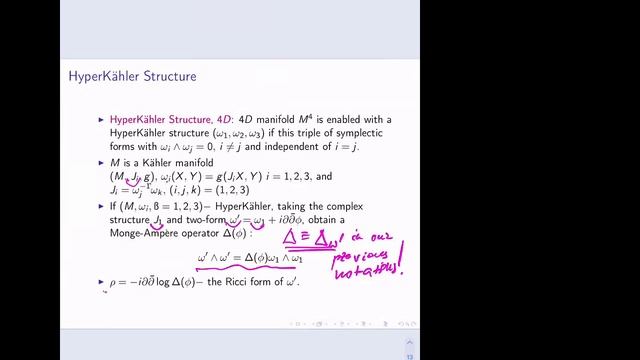 HyperKähler Structure
HyperKähler Structure, 4D: 4D manifold M⁴ is enabled with a
HyperKähler structure (ω₁, ω₂, ω₃) if this triple of symplectic
forms with ωᵢ ∧ ωⱼ = 0, i ≠ j and independent of i = j.
M is a Kähler manifold
(M, Jᵢ, g), ωⱼ(X, Y) = g(JᵢX, Y) i = 1, 2, 3, and
Jᵢ = ωⱼ⁻¹ωₖ, (i, j, k) = (1, 2, 3)
If (M, ωᵢ, ß = 1, 2, 3)− HyperKähler, taking the complex
structure J₁ and two-form ω′ = ω₁ + i∂∂̄ϕ, obtain a
Monge-Ampère operator Δ(ϕ) :
Δ ≡ Δω′ in our
previous
notations!
ω′ ∧ ω′ = Δ(ϕ)ω₁ ∧ ω₁
ρ = −i∂∂̄ log Δ(ϕ)− the Ricci form of ω′.
13